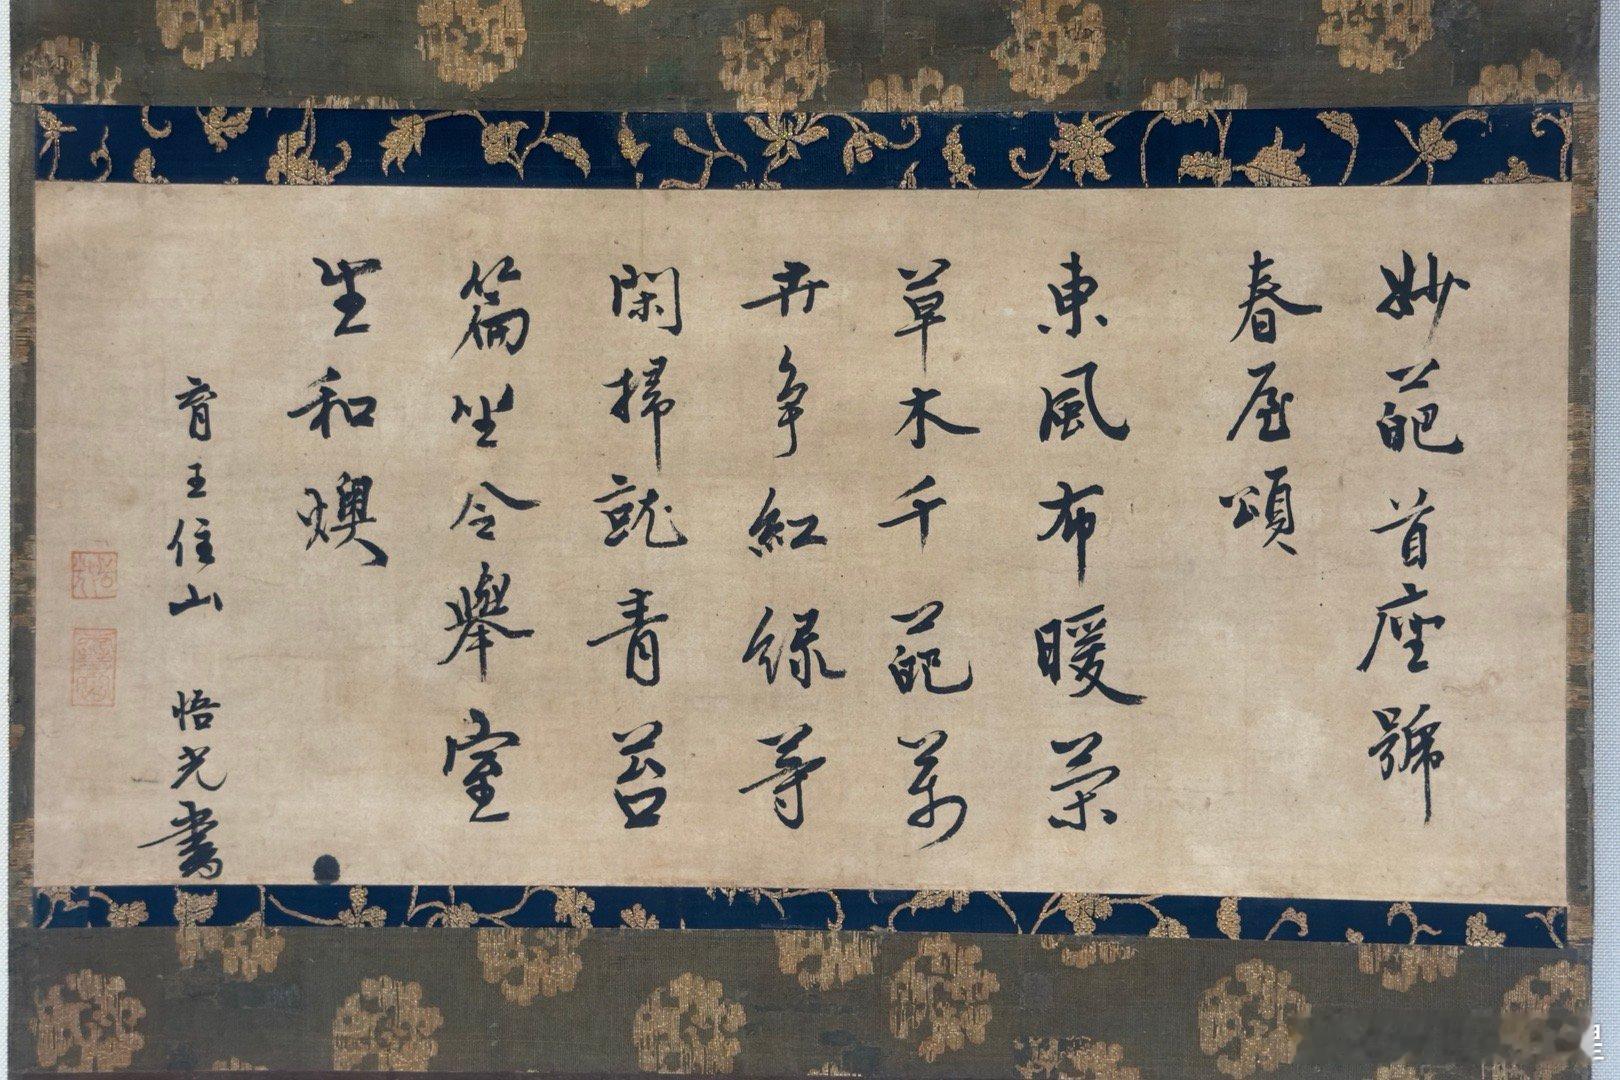 妙葩首座號
春屋頌
東風布暖榮
草木千葩萬
卉争紅緑等
閑掃就青苔
篇坐令舉室
生和燠
育王住山 悟光書